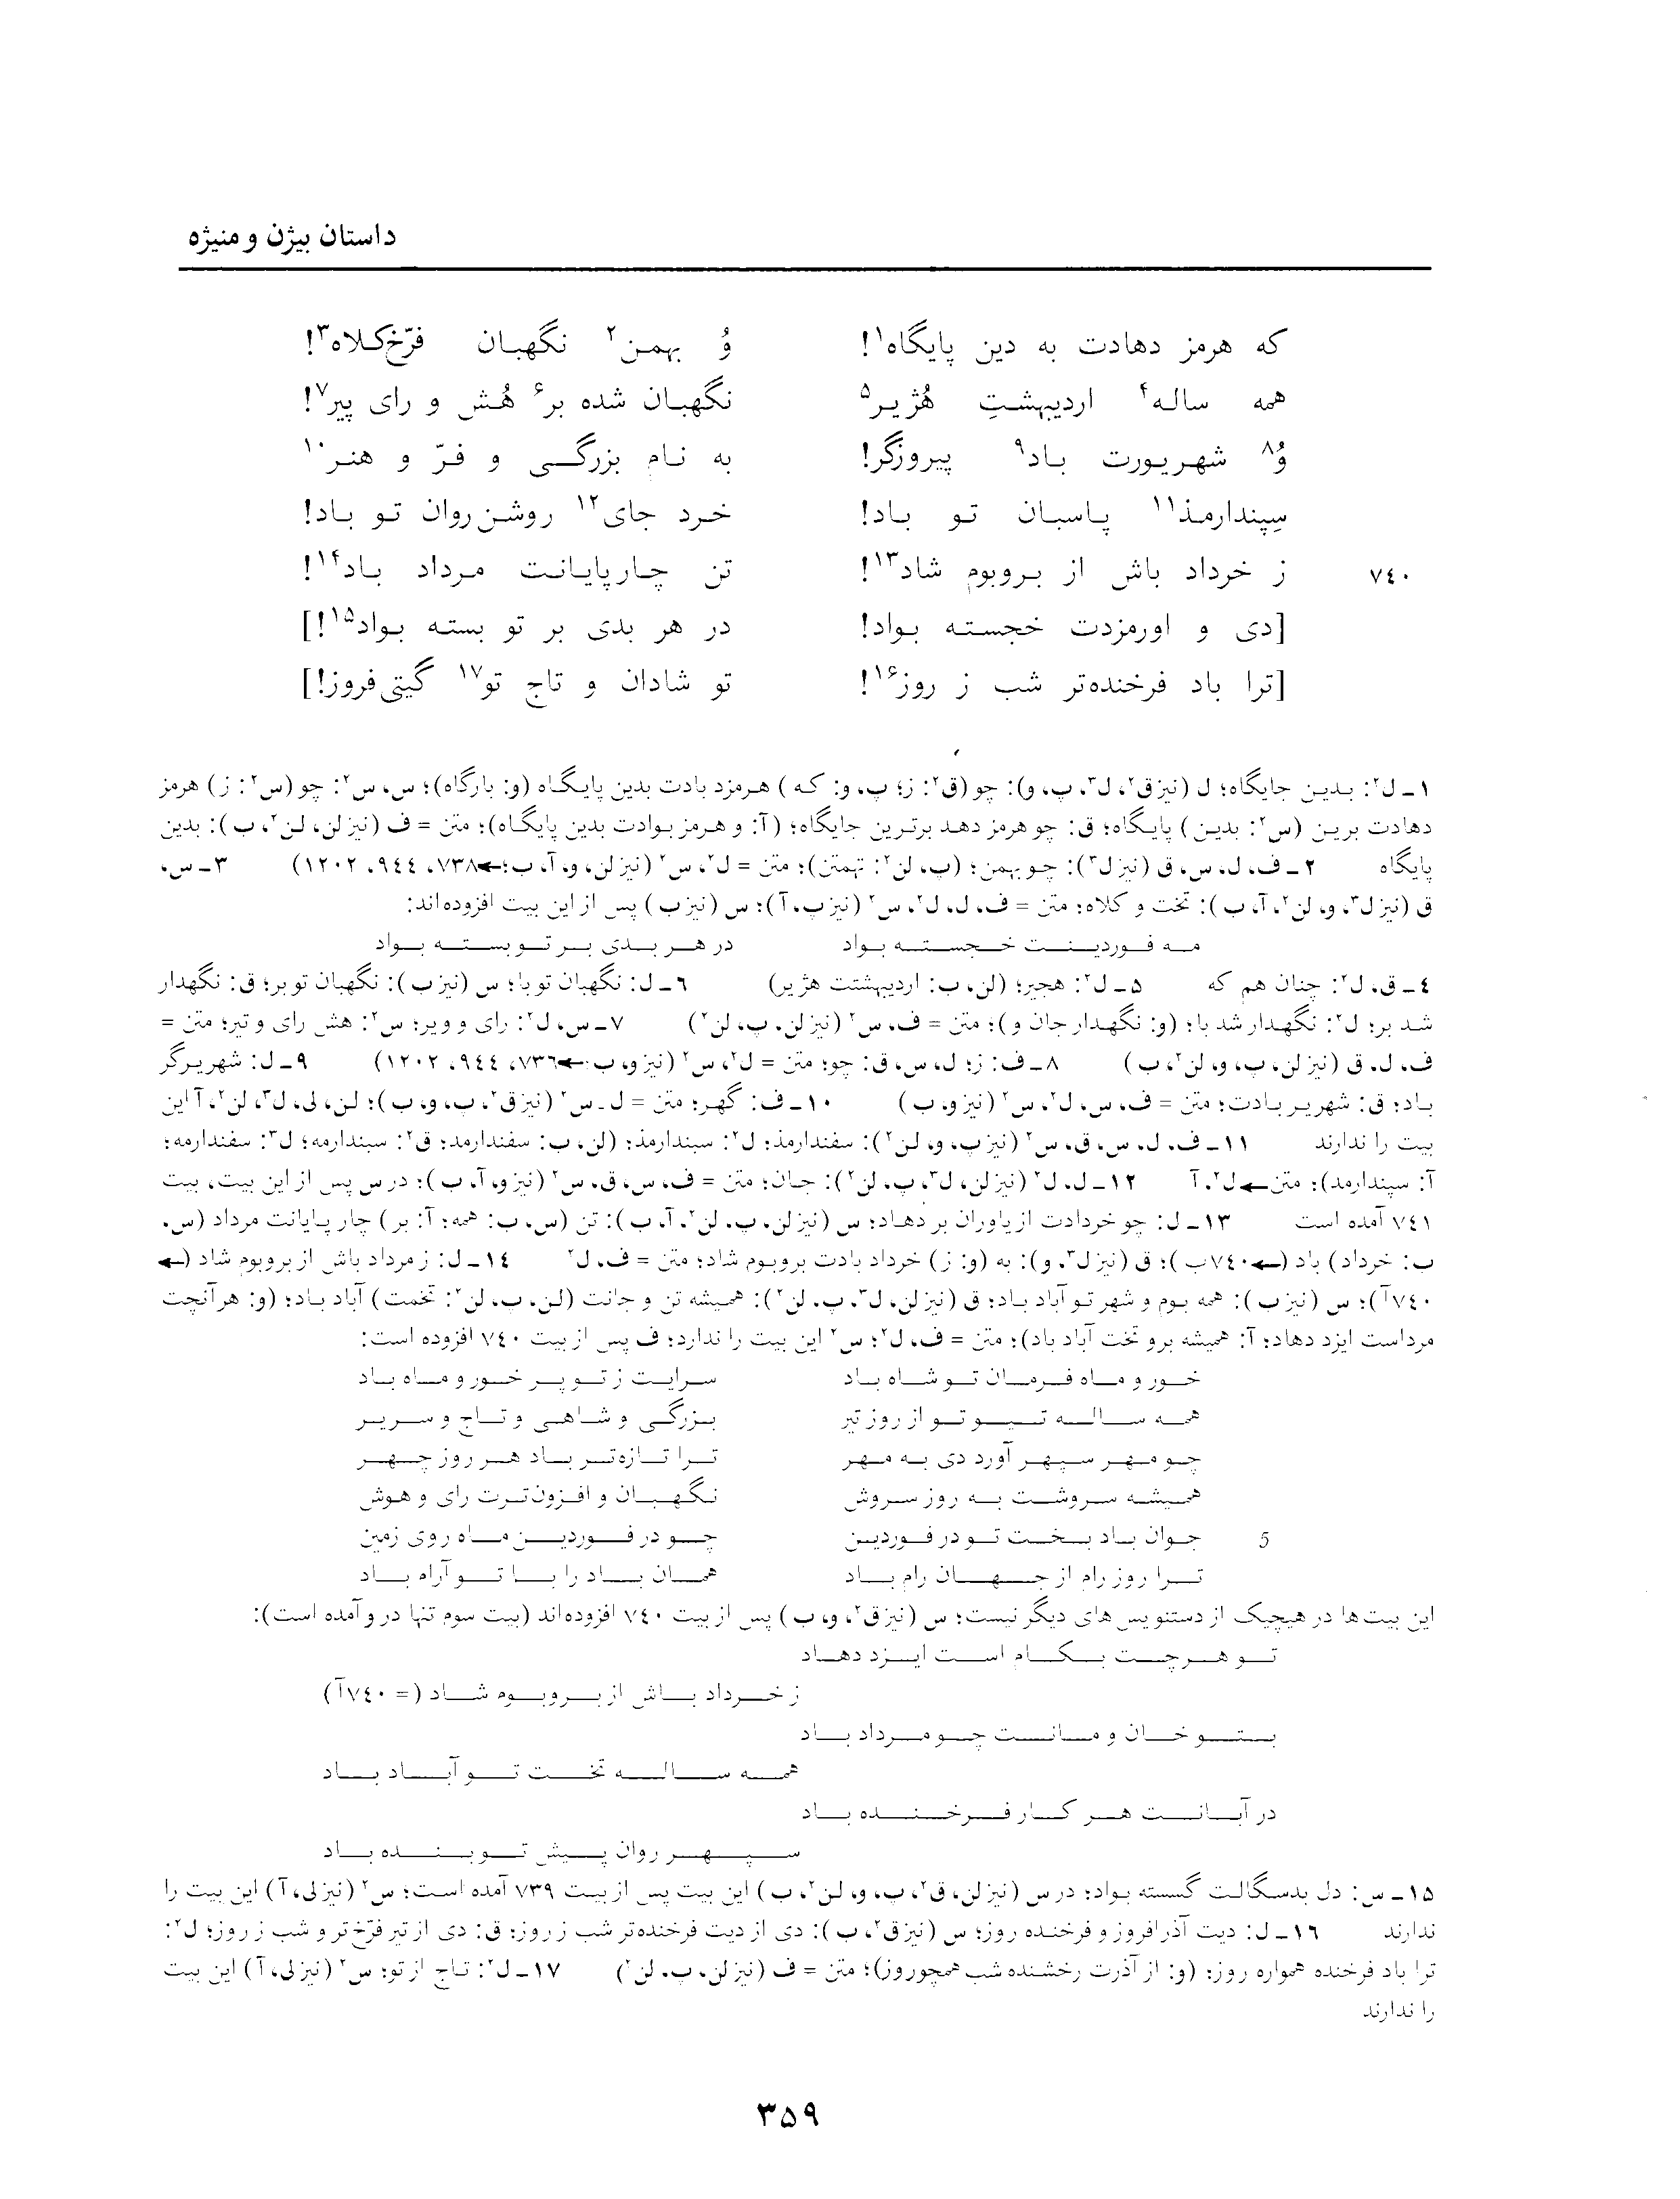 داستان بیژن و منیژه
که هرمز دهادت به دین پایگاه۱! وُ بهمن۲ نگهبان فرّخ‌کلاه۳!
همه ساله۴ اردیبهشتِ هُژیر۵ نگهبان شده بر۶ هُش و رای پیر۷!
وُ۸ شهریورت باد۹ پیروزگر! به نام بزرگی و فرّ و هنر۱۰
سِپندارمذ۱۱ پاسبان تو باد! خرد جای۱۲ روشن‌روان تو باد!
۷۴۰ ز خرداد باش از بروبوم شاد۱۳! تن چارپایانت مرداد باد۱۴!
[دی و اورمزدت خجسته بواد! در هر بدی بر تو بسته بواد۱۵!]
[ترا باد فرخنده‌تر شب ز روز۱۶! تو شادان و تاج تو۱۷ گیتی‌فروز!]
۱ـ ل۲: بدین جایگاه؛ ل (نیز ق۲، ل۳، پ، و): چو (ق۲: ز؛ پ، و: که) هرمزد بادت بدین پایگاه (و: بارگاه)؛ س، س۲: چو (س۲: ز) هرمز
دهادت برین (س۲: بدین) پایگاه؛ ق: چو هرمز دهد برترین جایگاه؛ (آ: و هرمز بوادت بدین پایگاه)؛ متن = ف (نیز لن، لن۲، ب): بدین
پایگاه ۲ـ ف، ل، س، ق (نیز ل۳): چو بهمن؛ (پ، لن۲: تهمتن)؛ متن = ل۲، س۲ (نیز لن، و، آ، ب؛←۷۳۸، ۹۴۴، ۱۲۰۲) ۳ـ س،
ق (نیز ل۳، و، لن۲، آ، ب): تخت و کلاه؛ متن = ف، ل، ل۲، س۲ (نیز پ، آ)؛ س (نیز ب) پس از این بیت افزوده‌اند:
مه فوردینت خجسته بواد در هر بدی بر تو بسته بواد
۴ـ ق، ل۲: چنان هم که ۵ـ ل۲: هجیر؛ (لن، ب: اردیبهشتت هژیر) ۶ـ ل: نگهبان تو با؛ س (نیز ب): نگهبان تو بر؛ ق: نگهدار
شد بر؛ ل۲: نگهدار شد با؛ (و: نگهدار جان و)؛ متن = ف، س۲ (نیز لن، پ، لن۲) ۷ـ س، ل۲: رای و ویر؛ س۲: هش رای و تیر؛ متن =
ف، ل، ق (نیز لن، پ، و، لن۲، ب) ۸ـ ف: ز؛ ل، س، ق: چو؛ متن = ل۲، س۲ (نیز و، ب؛←۷۳۶، ۹۴۴، ۱۲۰۲) ۹ـ ل: شهریرگر
باد؛ ق: شهریر بادت؛ متن = ف، س، ل۲، س۲ (نیز و، ب) ۱۰ـ ف: گهر؛ متن = ل ـ س۲ (نیز ق۲، پ، و، ب)؛ لن، لی، ل۳، لن۲، آ این
بیت را ندارند ۱۱ـ ف، ل، س، ق، س۲ (نیز پ، و، لن۲): سفندارمذ؛ ل۲: سبندارمذ؛ (لن، ب: سفندارمد؛ ق۲: سبندارمه؛ ل۳: سفندارمه؛
آ: سپندارمد)؛ متن← ل۲، آ ۱۲ـ ل، ل۲ (نیز لن، ل۳، پ، لن۲): جان؛ متن = ف، س، ق، س۲ (نیز و، آ، ب)؛ در س پس از این بیت، بیت
۷۴۱ آمده است ۱۳ـ ل: چو خردادت از یاوران بر دهاد؛ س (نیز لن، پ، لن۲، آ، ب): تن (س، ب: همه؛ آ: بر) چار پایانت مرداد (س،
ب: خرداد) باد (←۷۴۰ب)؛ ق (نیز ل۳، و): به (و: ز) خرداد بادت بروبوم شاد؛ متن = ف، ل۲ ۱۴ـ ل: ز مرداد باش از بروبوم شاد (←
۷۴۰آ)؛ س (نیز ب): همه بوم و شهر تو آباد باد؛ ق (نیز لن، ل۳، پ، لن۲): همیشه تن و جانت (لن، پ، لن۲: تخمت) آباد باد؛ (و: هر آنچت
مرداست ایزد دهاد؛ آ: همیشه برو تخت آباد باد)؛ متن = ف، ل۲؛ س۲ این بیت را ندارد؛ ف پس از بیت ۷۴۰ افزوده است:
خور و ماه فرمان تو شاه باد سرایت ز تو پر خور و ماه باد
همه ساله تیو تو از روز تیر بزرگی و شاهی و تاج و سریر
چو مهر سپهر آورد دی به مهر ترا تازه‌تر باد هر روز چهر
همیشه سروشت به روز سروش نگهبان و افزون‌ترت رای و هوش
5 جوان باد بخت تو در فوردین چو در فوردین ماه روی زمین
ترا روز رام از جهان رام باد همان باد را با تو آرام باد
این بیت‌ها در هیچیک از دستنویس‌های دیگر نیست؛ س (نیز ق۲، و، ب) پس از بیت ۷۴۰ افزوده‌اند (بیت سوم تنها در و آمده است):
تو هرچت بکام است ایزد دهاد
ز خرداد باش از بروبوم شاد (= ۷۴۰آ)
بتو خان و مانت چو مرداد باد
همه ساله تخت تو آباد باد
در آبانت هر کار فرخنده باد
سپهر روان پیش تو بنده باد
۱۵ـ س: دل بدسگالت گسسته بواد؛ در س (نیز لن، ق۲، پ، و، لن۲، ب) این بیت پس از بیت ۷۳۹ آمده است؛ س۲ (نیز لی، آ) این بیت را
ندارند ۱۶ـ ل: دیت آذر افروز و فرخنده روز؛ س (نیز ق۲، ب): دی از دیت فرخنده‌تر شب ز روز؛ ق: دی از تیر فرّخ‌تر و شب ز روز؛ ل۲:
ترا باد فرخنده همواره روز؛ (و: از آذرت رخشنده شب همچو روز)؛ متن = ف (نیز لن، پ، لن۲) ۱۷ـ ل۲: تاج از تو؛ س۲ (نیز لی، آ) این بیت
را ندارند
۳۵۹